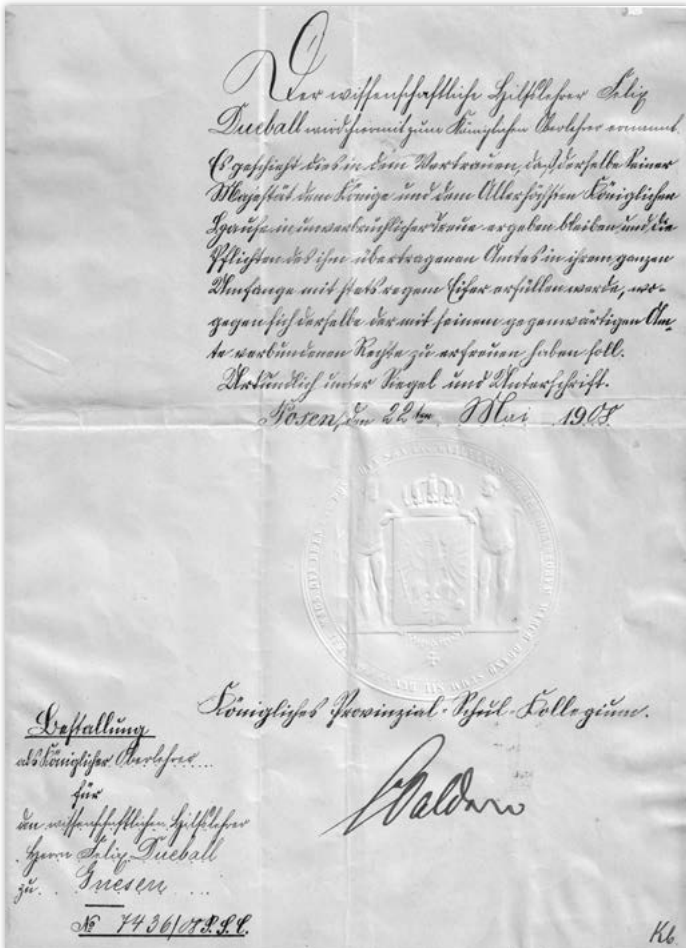 Der wissenschaftliche Hilfslehrer Felix
Dueball wird hiermit zum Königlichen Oberlehrer ernannt.
Es geschieht dies in dem Vertrauen, daß derselbe Seiner
Majestät dem Könige und dem Allerhöchsten Königlichen
Hause in unverbrüchlicher Treue ergeben bleiben und die
Pflichten des ihm übertragenen Amtes in ihrem ganzen
Umfange mit stets regem Eifer erfüllen werde, wo-
gegen sich derselbe der mit seinem gegenwärtigen Am-
te verbundenen Rechte zu erfreuen haben soll.
Urkundlich unter Siegel und Unterschrift.
Posen, den 22ten Mai 1908.
Königliches Provinzial-Schul-Kollegium.
Bestallung
als Königlicher Oberlehrer
für
den wissenschaftlichen Hilfslehrer
Herrn Felix Dueball
zu Gnesen
№ 7436/08 P.S.C.